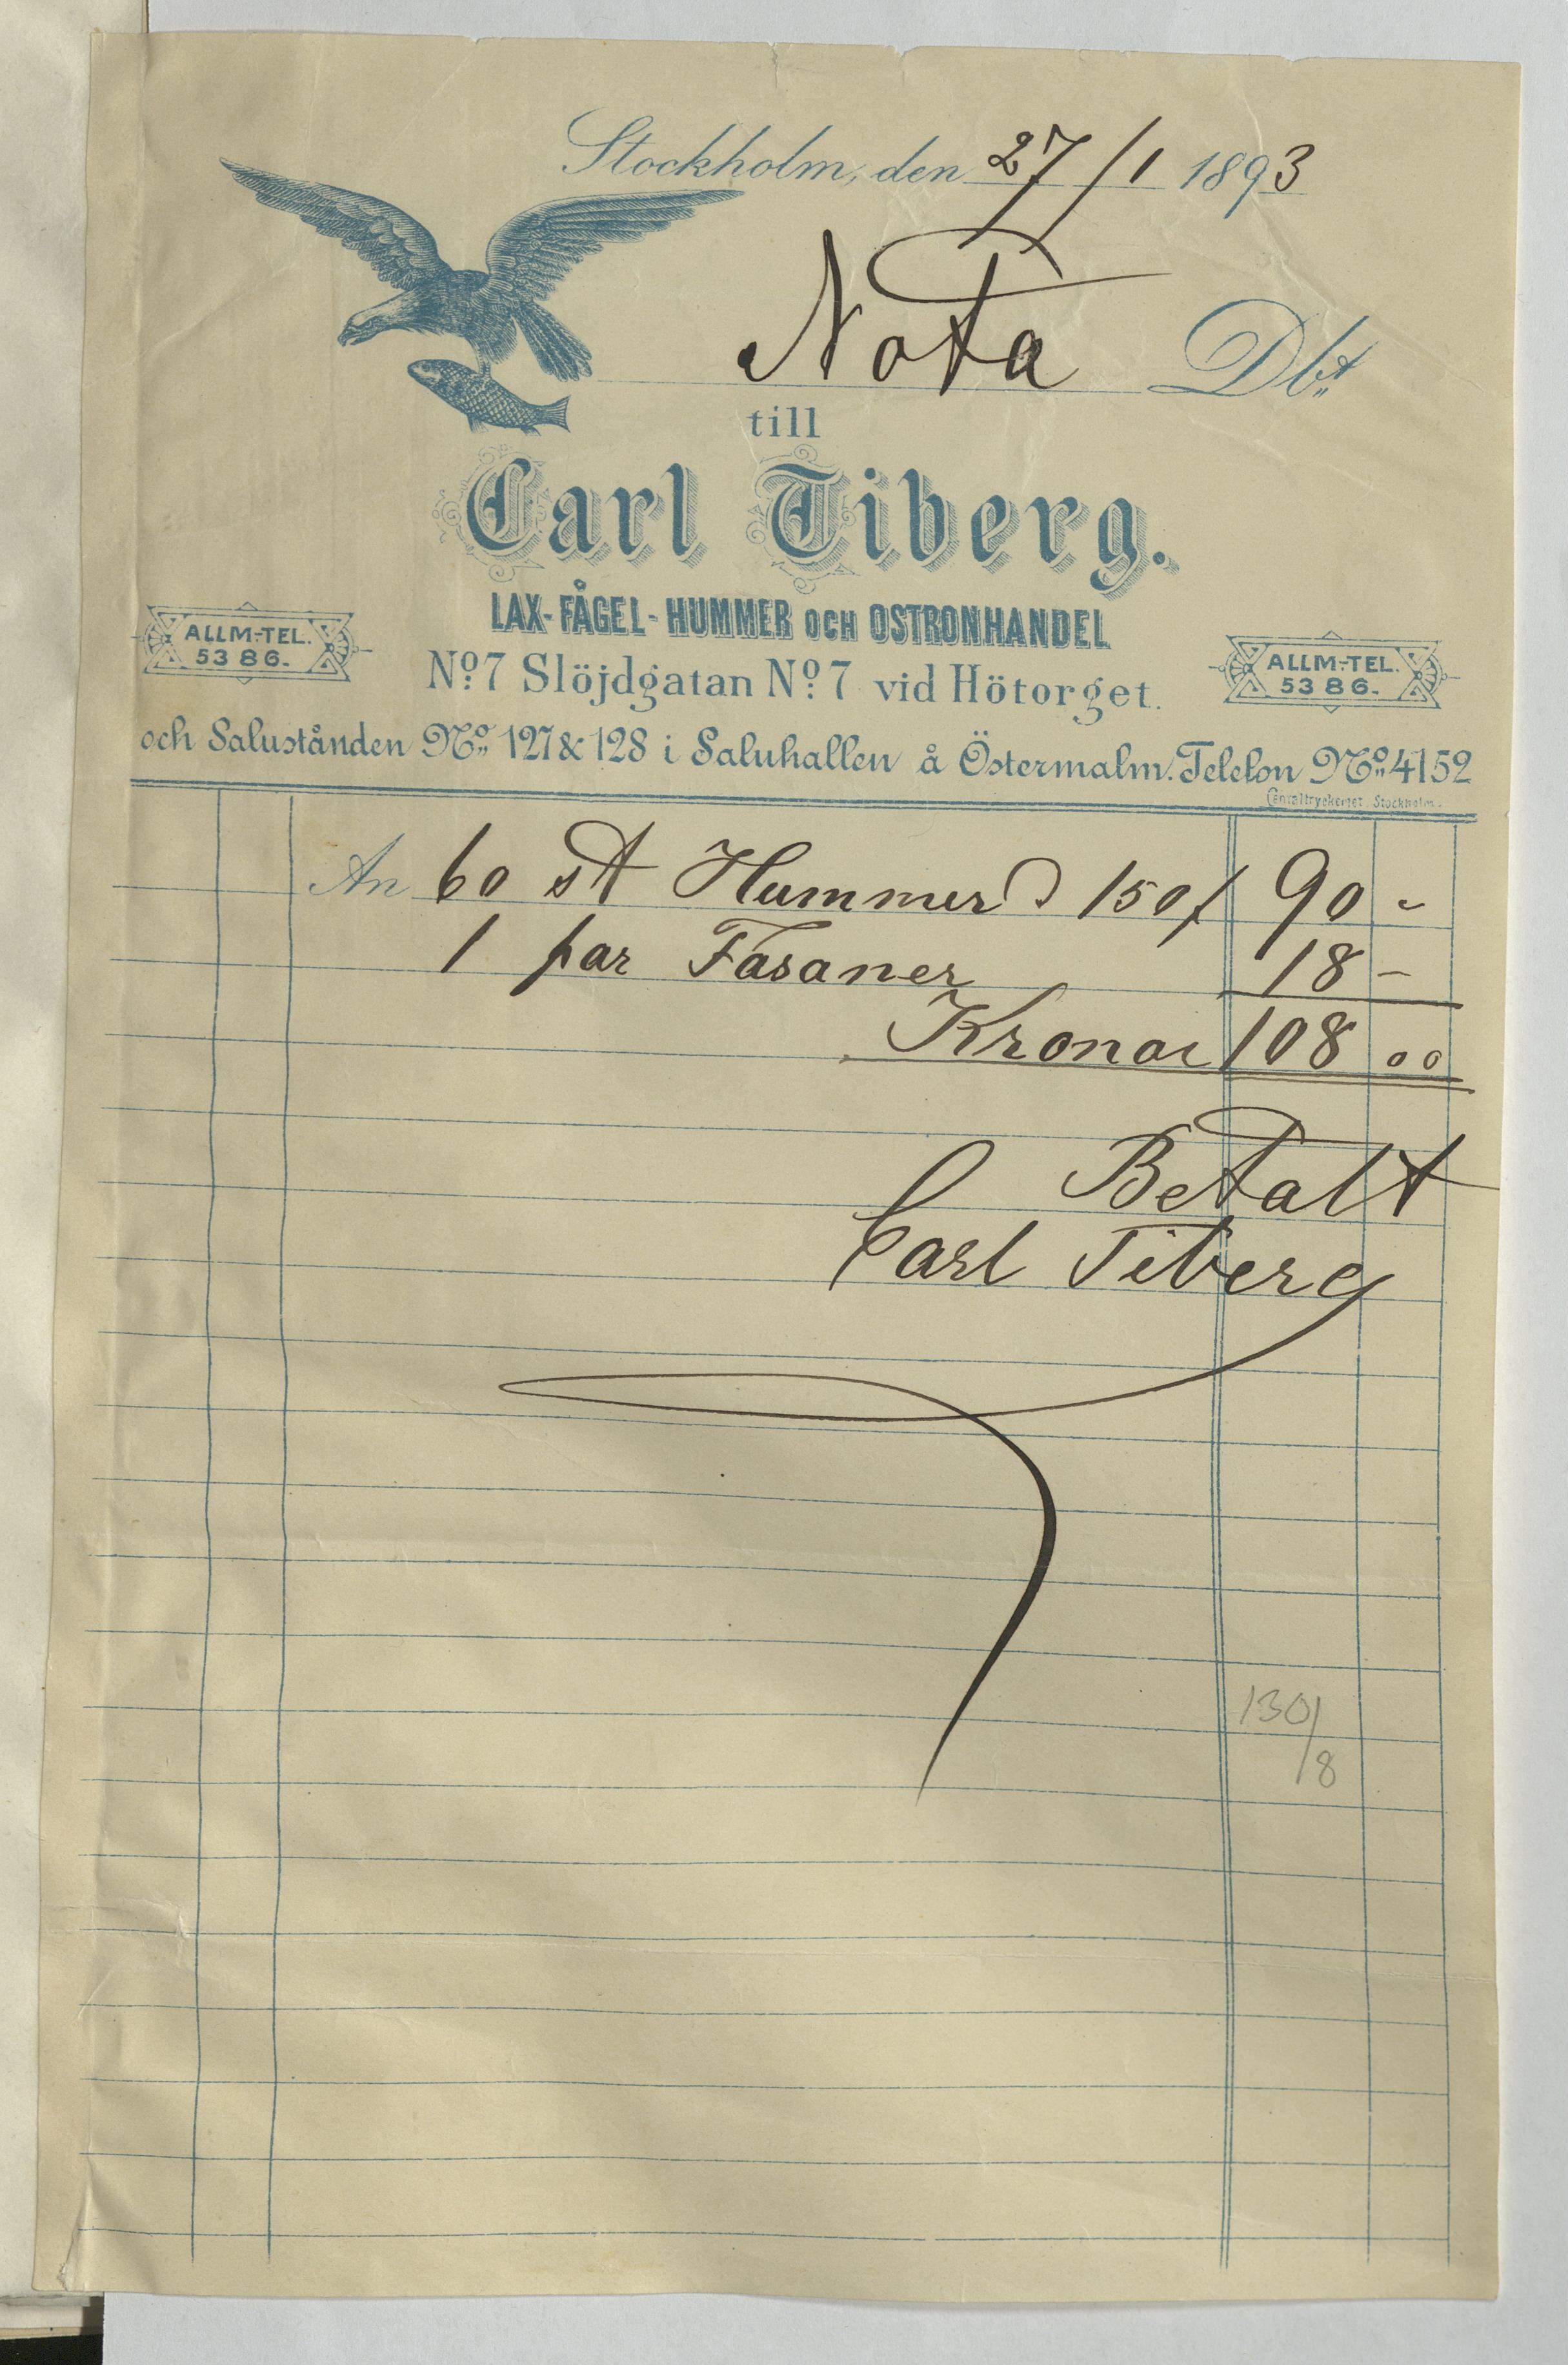 Stockholm, den 27/1 1893
Nota Dbt
till
Carl Tiberg.
LAX-FÅGEL-HUMMER OCH OSTRONHANDEL
ALLM-TEL.
5386.
No 7 Slöjdgatan No 7 vid Hötorget.
ALLM-TEL.
5386.
och Salustånden No 127 & 128 i Saluhallen å Östermalm. Telefon No 4152
Centraltryckeriet, Stockholm.
An 60 st Hummer 150 90 -
1 par Fasaner 18 -
Kronor 108 00
Betalt
Carl Tiberg
130/8